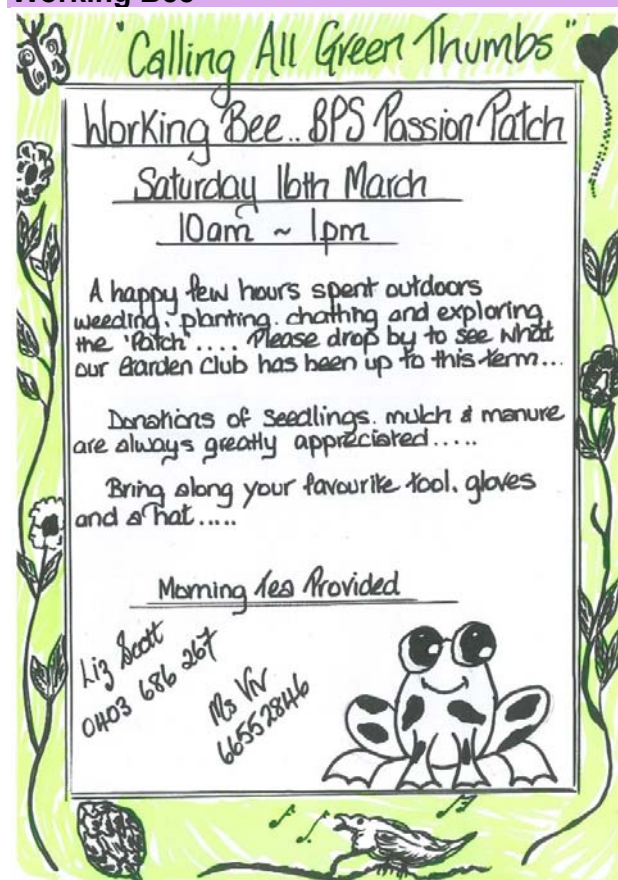 Working Bee
"Calling All Green Thumbs"
Working Bee.. BPS Passion Patch
Saturday 16th March
10am ~ 1pm
A happy few hours spent outdoors
weeding, planting, chatting and exploring
the 'Patch'.... Please drop by to see what
our Garden Club has been up to this term...
Donations of Seedlings, mulch & manure
are always greatly appreciated.....
Bring along your favourite tool, gloves
and a hat.....
Morning Tea Provided
Liz Scott
0403 686 267
Ms Viv
66552846